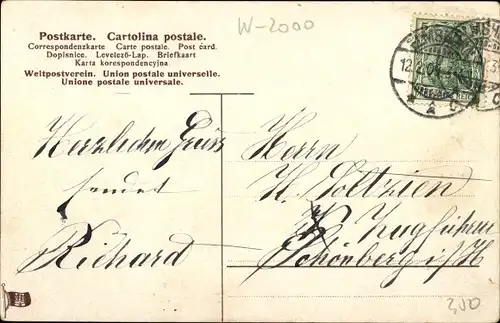 W-2000
Postkarte. Cartolina postale.
Correspondenzkarte Carte postale. Post card.
Dopisnice. Levelező-Lap. Briefkaart
Karta korespondencyjna
Weltpostverein. Union postale universelle.
Unione postale universale.
12.
Herzlichen Gruß
sendet
Richard
Herrn
H. Voltzien
Zugführer
Schönberg i/H
350